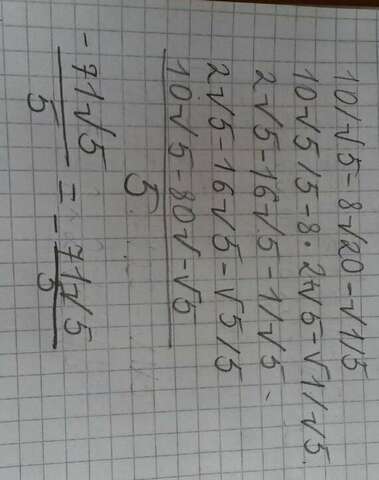 10/√5-8√20-√1/5
10√5/5-8·2√5-√1/√5.
2√5-16√5-1/√5.
2√5-16√5-√5/5
10√5-80√-√5
5
-71√5 = - 71√5
5 5